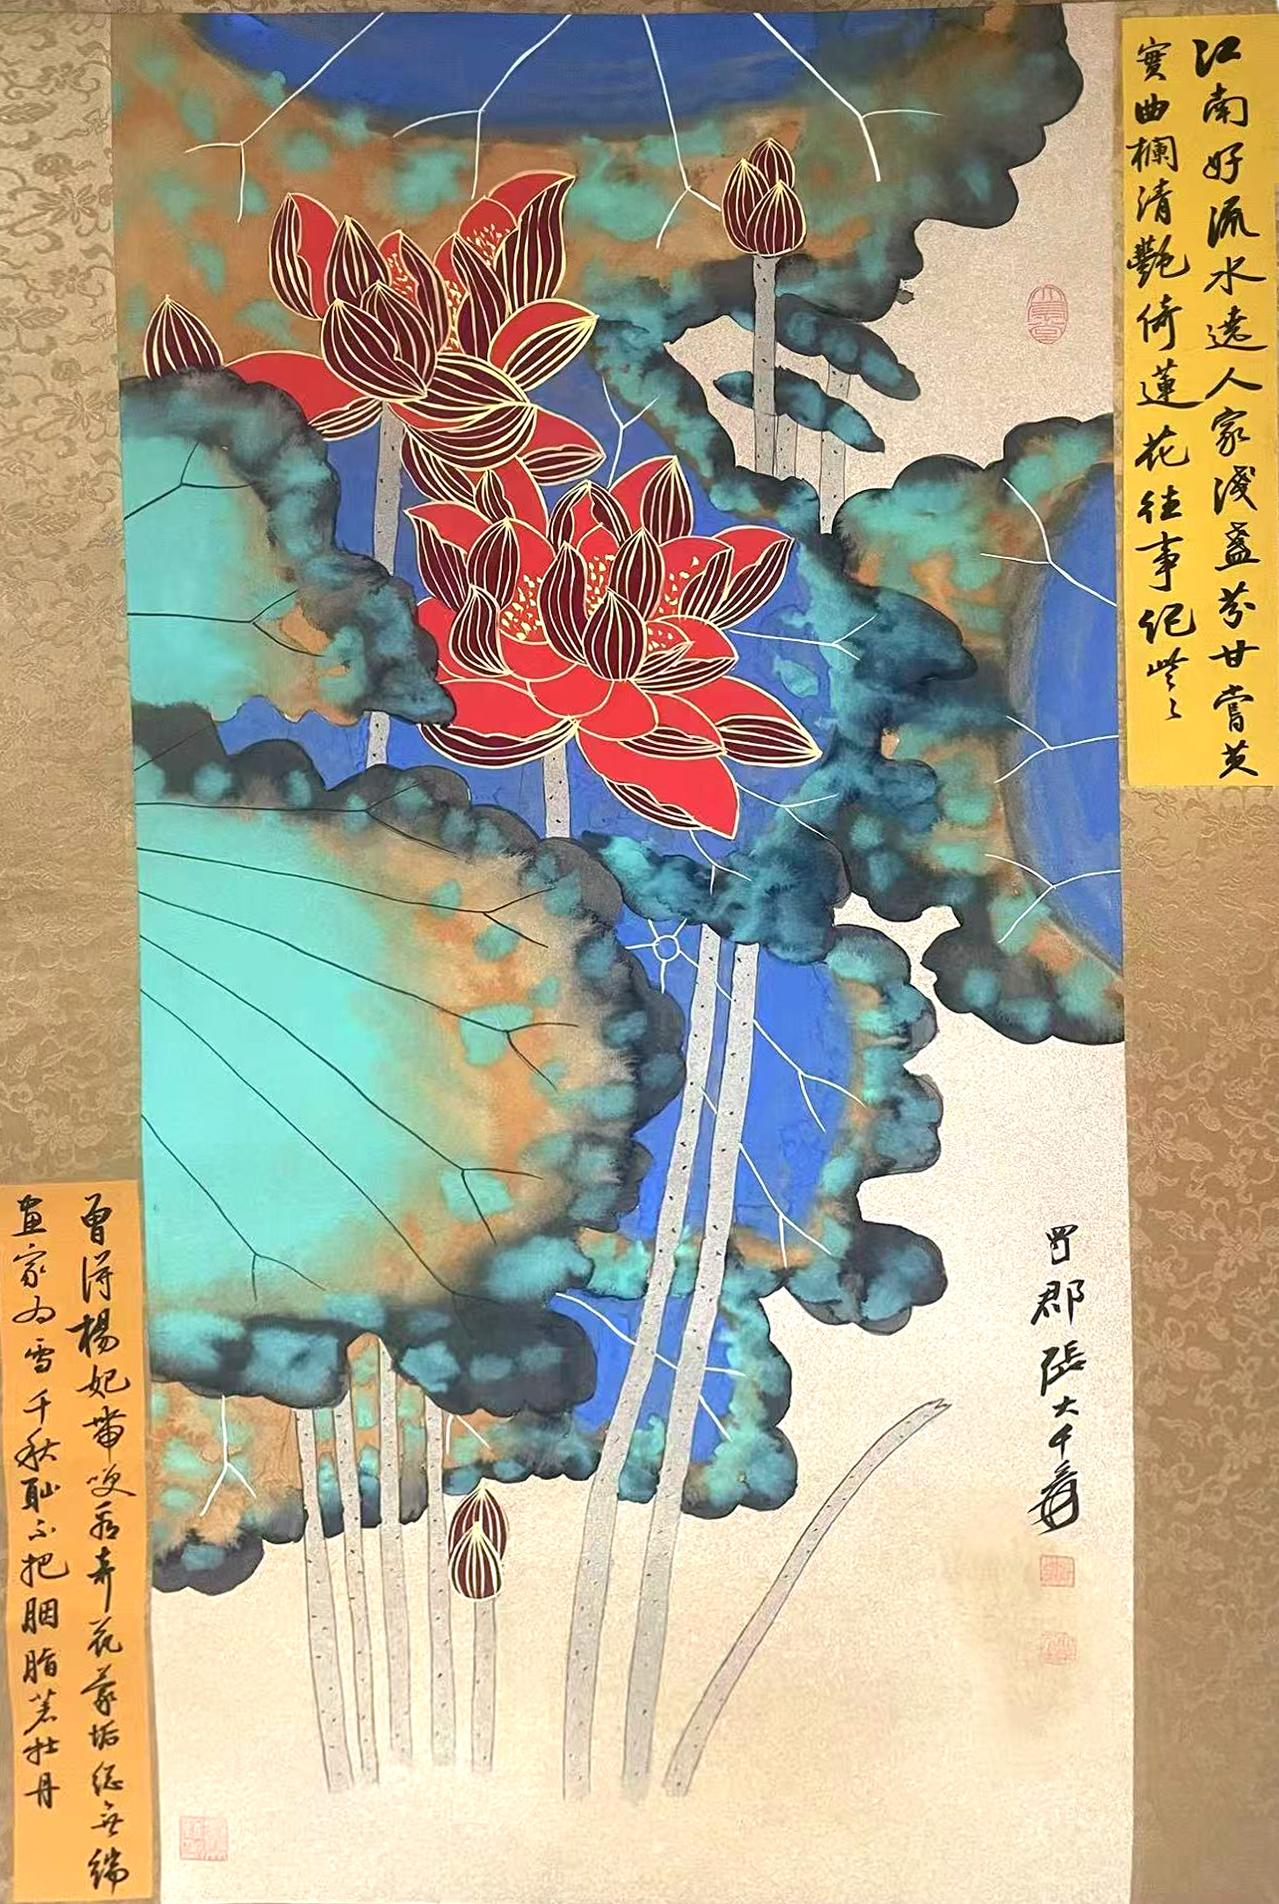 江南好流水遶人家淺盞芬甘嘗芡
實曲欄清艷倚蓮花往事紀些〻
蜀郡張大千爰
曾得楊妃帶咲看奇花蒙垢總無端
畫家為雪千秋恥不把胭脂著牡丹